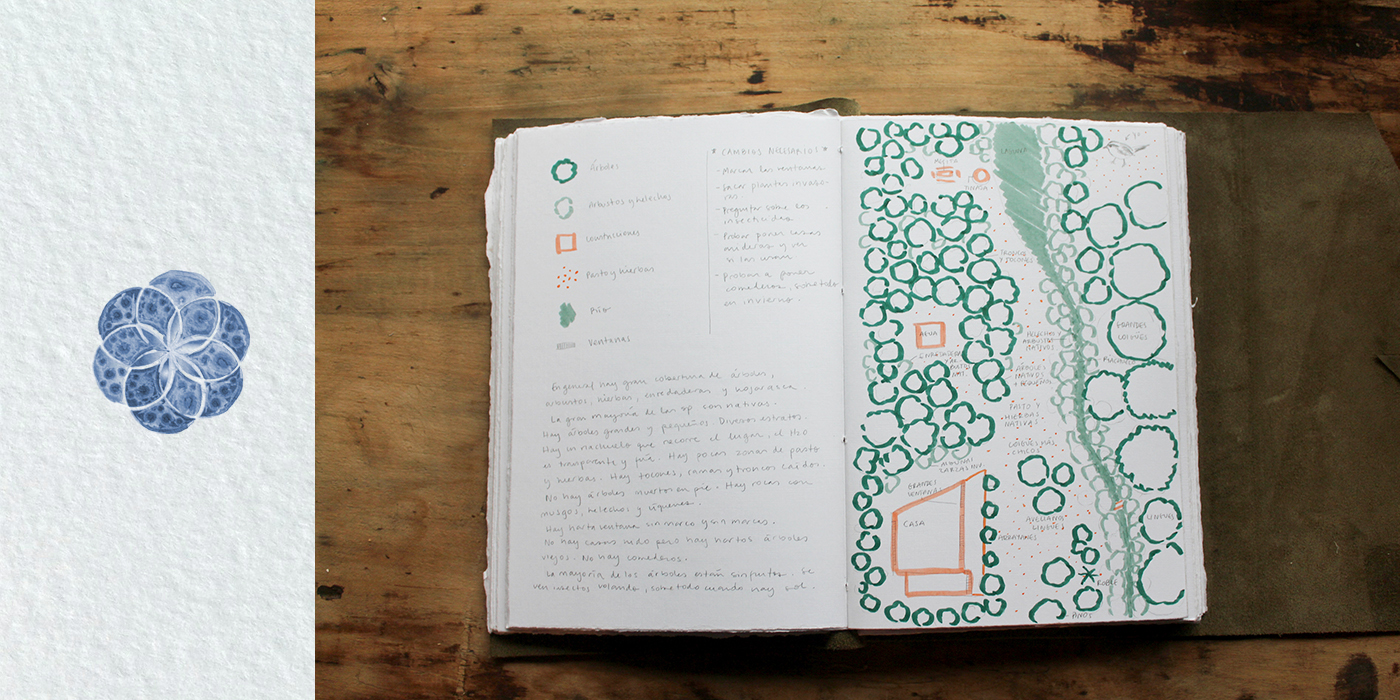 Árboles
Arbustos y helechos
Construcciones
Pasto y hierbas
Río
Ventanas
* CAMBIOS NECESARIOS *
- Marcar las ventanas.
- Sacar plantas invaso-
ras
- Preguntar sobre los
insecticidas
- Probar poner casas
anideras y ver
si las usan
- Probar a poner
comederos, sobretodo
en invierno.
En general hay gran cobertura de árboles,
arbustos, hierbas, enredaderas y hojarasca.
La gran mayoría de las sp son nativas.
Hay árboles grandes y pequeños. Diversos estratos.
Hay un riachuelo que recorre el lugar, el H2O
es transparente y fría. Hay pocas zonas de pasto
y hierbas. Hay tocones, ramas y troncos caídos.
No hay árboles muertos en pie. Hay rocas con
musgos, helechos y líquenes.
Hay harta ventana sin marco y sin marcas.
No hay casas nido pero hay hartos árboles
viejos. No hay comederos.
La mayoría de los árboles están sin frutos. Se
ven insectos volando, sobretodo cuando hay sol.
LAGUNA
MESITA
TINAJA
TRONCOS
Y TOCONES
AGUA
HELECHOS Y
ARBUSTOS
NATIVOS
ÁRBOLES
NATIVOS
+ PEQUEÑOS
GRANDES
COIGÜES
RIACHUELO
PASTO Y
HIERBAS
NATIVAS
COIGÜES MÁS
CHICOS
GRANDES
VENTANAS
CASA
AVELLANOS
ARRAYANES
ROBLE